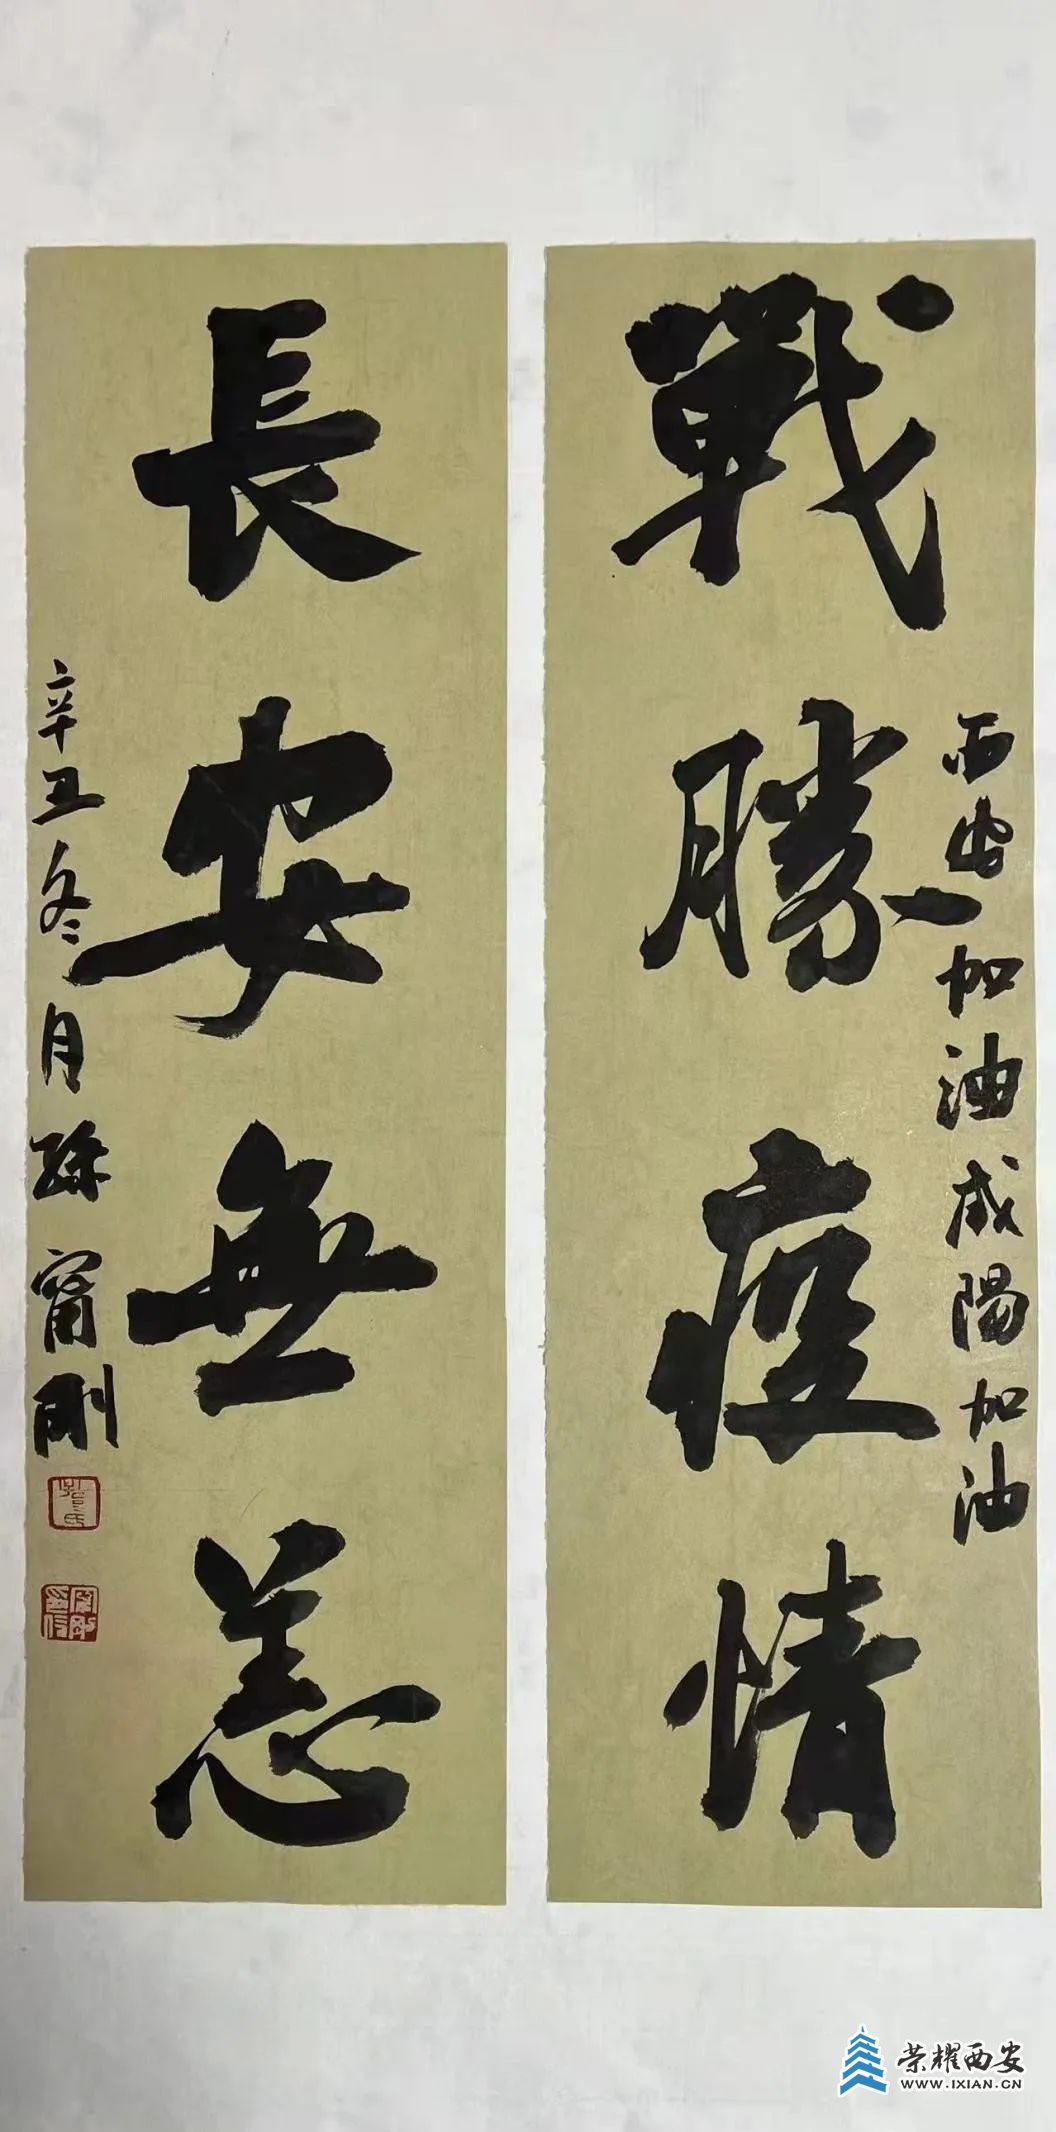 戰勝疫情
西安加油咸陽加油
長安無恙
辛丑冬月孫甯剛
荣耀西安
WWW.IXIAN.CN